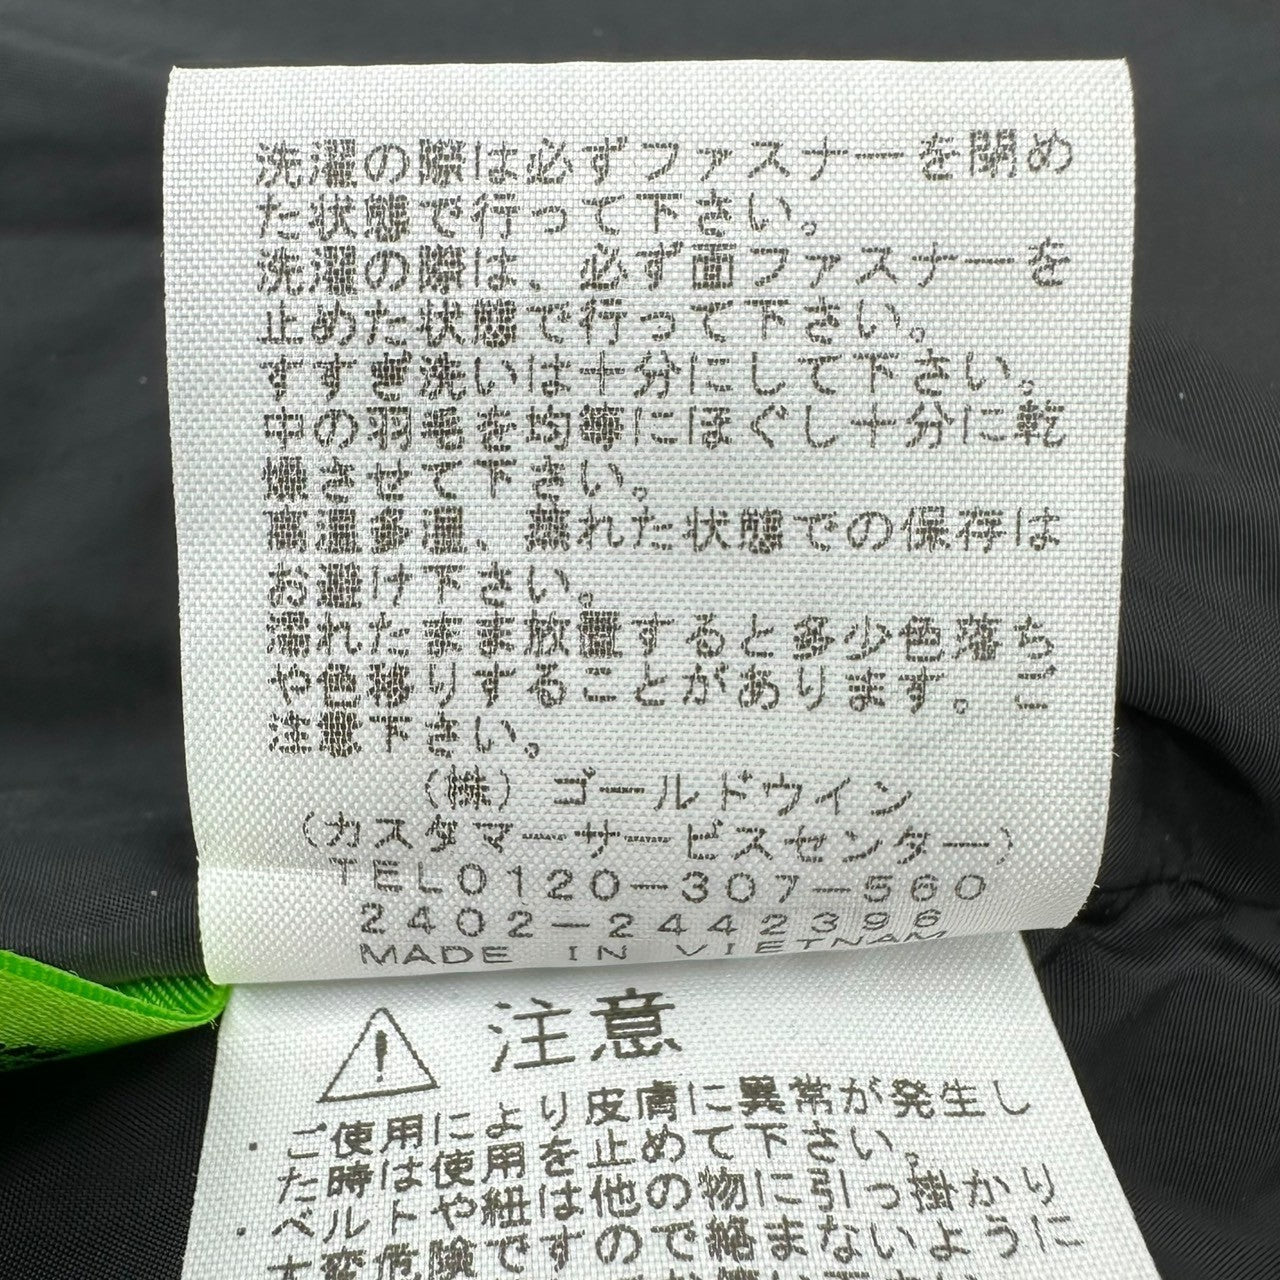 洗濯の際は必ずファスナーを閉め
た状態で行って下さい。
洗濯の際は、必ず面ファスナーを
止めた状態で行って下さい。
すすぎ洗いは十分にして下さい。
中の羽毛を均等にほぐし十分に乾
燥させて下さい。
高温多湿、蒸れた状態での保存は
お避け下さい。
濡れたまま放置すると多少色落ち
や色移りすることがあります。ご
注意下さい。
(株)ゴールドウイン
(カスタマーサービスセンター)
TEL0120-307-560
2402-2442396
MADE IN VIETNAM
注意
・ご使用により皮膚に異常が発生し
た時は使用を止めて下さい。
・ベルトや紐は他の物に引っ掛かり
大変危険ですので絡まないように